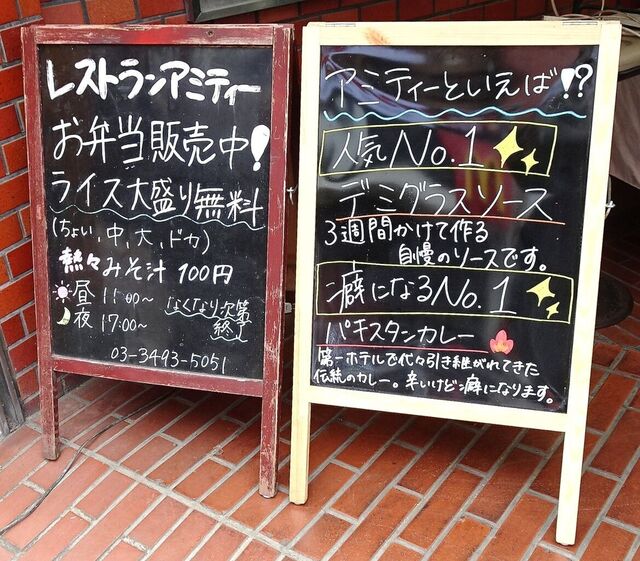 レストランアミティー
お弁当販売中!
ライス大盛り無料
(ちょい,中,大,ドカ)
熱々みそ汁 100円
昼 11:00~
夜 17:00~
なくなり次第
終了
03-3493-5051
アミティーといえば!?
人気No.1
デミグラスソース
3週間かけて作る
自慢のソースです。
癖になるNo.1
パキスタンカレー
第一ホテルで代々引き継がれてきた
伝統のカレー。辛いけど癖になります。